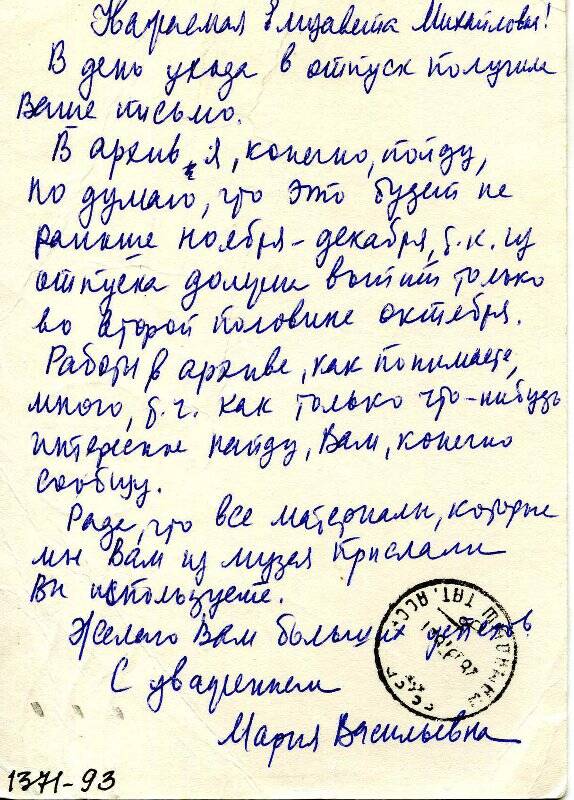 Уважаемая Елизавета Михайловна!
В день ухода в отпуск получила
Ваше письмо.
В архив я, конечно, пойду,
но думаю, что это будет не
раньше ноября-декабря, т.к. из
отпуска должна выйти только
во второй половине октября.
Работы в архиве, как понимаете,
много, т.ч. как только что-нибудь
интересное найду, Вам, конечно
сообщу.
Рада, что все материалы, которые
мы Вам из музея прислали
Вы используете.
Желаю Вам больших успехов.
С уважением
Мария Васильевна
СССР ТАТ. АССР
1371-93